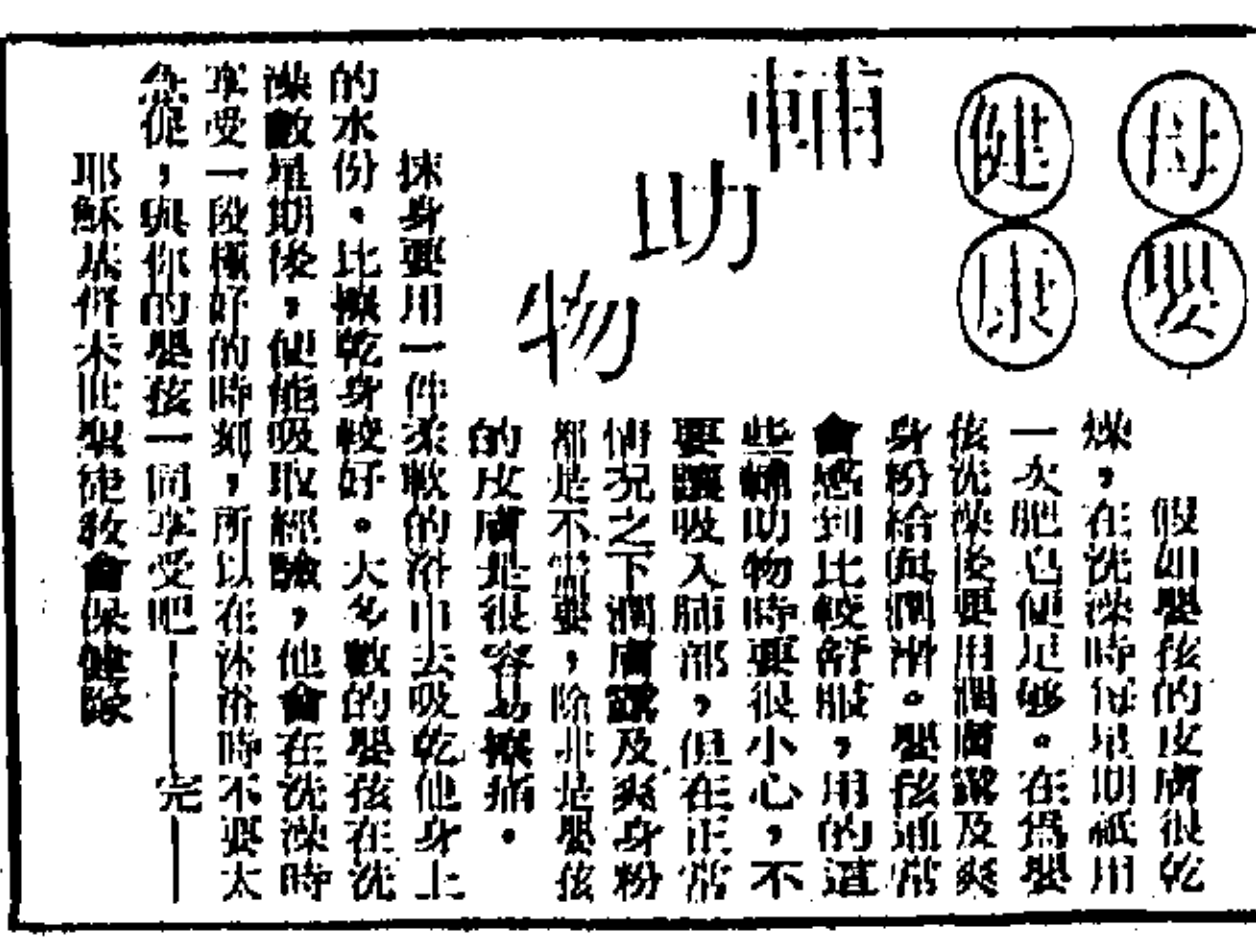 母嬰
健康
輔助物
假如嬰孩的皮膚很乾
燥，在洗澡時每星期祗用
一次肥皂便足够。在爲嬰
孩洗澡後要用潤膚露及爽
身粉給與潤滑。嬰孩通常
會感到比較舒服，用的這
些輔助物時要很小心，不
要讓吸入肺部，但在正常
情况之下潤膚露及爽身粉
都是不需要，除非是嬰孩
的皮膚是很容易擦痛。
抹身要用一件柔軟的浴巾去吸乾他身上
的水份。比擦乾身較好。大多數的嬰孩在洗
澡數星期後，便能吸取經驗，他會在洗澡時
享受一段極好的時刻，所以在沐浴時不要太
急促，與你的嬰孩一同享受吧！——完——
耶穌基督末世聖徒敎會保健隊